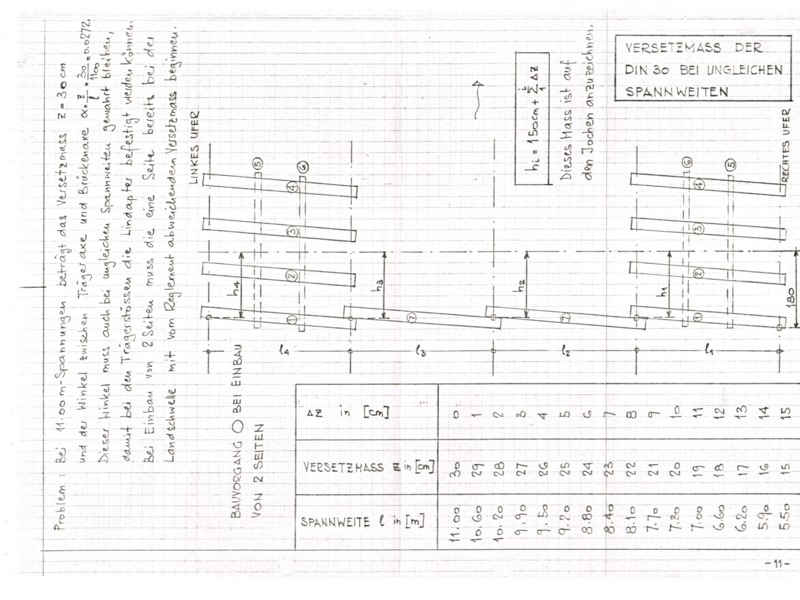 VERSETZMASS DER
DIN 30 BEI UNGLEICHEN
SPANNWEITEN
Problem: Bei 11.00 m-Spannungen beträgt das Versetzmass z = 30 cm
und der Winkel zwischen Trägeraxe und Brückenaxe α = z/l = 30/1100 = 0.0272.
Dieser Winkel muss auch bei ungleichen Spannweiten gewahrt bleiben,
damit bei den Trägerstössen die Lindapter befestigt werden können.
Bei Einbau von 2 Seiten muss die eine Seite bereits bei der
Landschwelle mit vom Reglement abweichendem Versetzmass beginnen.
hi = 150cm + Σ Δz
i
1
Dieses Mass ist auf
den Jochen anzuzeichnen.
LINKES UFER
RECHTES UFER
5
6
4
3
2
1
h4
7
h3
h2
7
6
5
4
3
2
1
h1
180
l4
l3
l2
l1
BAUVORGANG O BEI EINBAU
VON 2 SEITEN
SPANNWEITE l in [m] VERSETZMASS z in [cm] Δz in [cm]
11.00 30 0
10.60 29 1
10.20 28 2
9.90 27 3
9.50 26 4
9.20 25 5
8.80 24 6
8.40 23 7
8.10 22 8
7.70 21 9
7.30 20 10
7.00 19 11
6.60 18 12
6.20 17 13
5.90 16 14
5.50 15 15
-11-